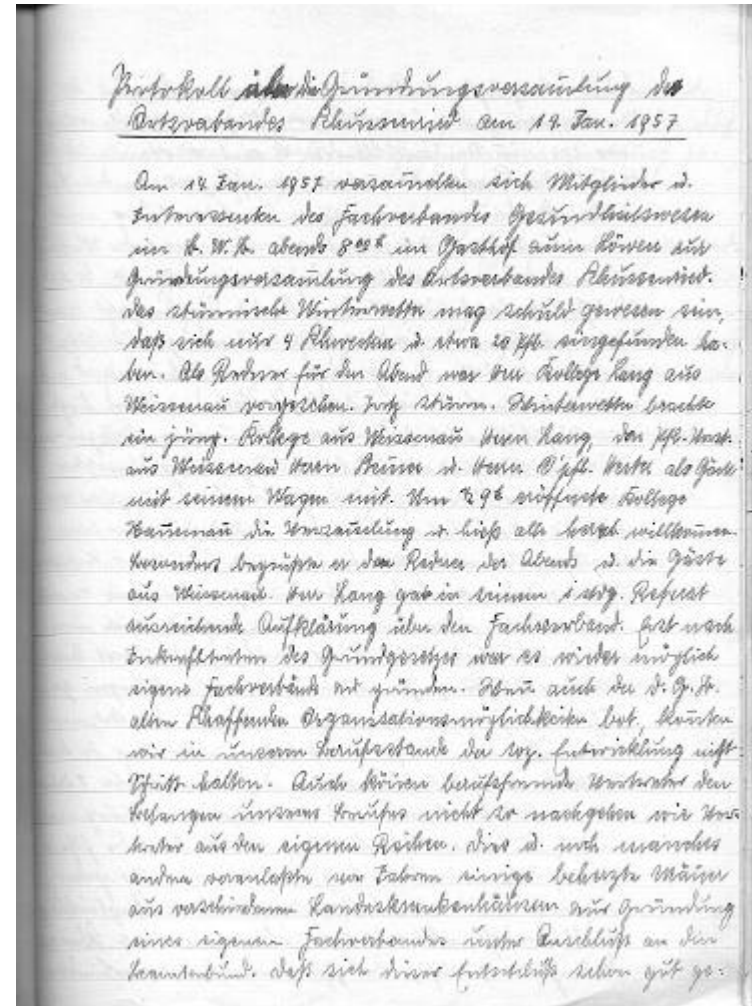 Protokoll über die Gründungsversammlung des
Ortsverbandes Schussenried am 19. Jan. 1957
Am 19. Jan. 1957 versammelten sich Mitglieder u.
Interessenten des Fachverbandes Gesundheitswesen
im abends 8 00 h im Gasthof zum Löwen zur
Gründungsversammlung des Ortsverbandes Schussenried.
Das stürmische Winterwetter mag schuld gewesen sein,
daß sich nur 4 Schwestern u. etwa 20 Pfl. eingefunden ha-
ben. Als Redner für den Abend war Herr Kollege Lang aus
Weissenau vorgesehen. Trotz stürm. Winterwetter brachte
ein jüng. Kollege aus Weissenau Herrn Lang, den Pfl.-Vorst.
aus Weissenau Herrn u. Herrn O'pfl. als Gäste
mit seinem Wagen mit. Um ½ 9 h eröffnete Kollege
die Versammlung u. hieß alle herzl. willkommen.
Besonders begrüßte er den Redner des Abends u. die Gäste
aus Weissenau. Herr Lang gab in seinem 1 stdg. Referat
ausreichende Aufklärung über den Fachverband. Erst nach
Inkrafttreten des Grundgesetzes war es wieder möglich
eigene Fachverbände zu gründen. Wenn auch der D.G.B.
allen Schaffenden Organisationsmöglichkeiten bot, konnten
wir in unserem Berufsstande der soz. Entwicklung nicht
Schritt halten. Auch können berufsfremde Vertreter den
Belangen unseres Berufes nicht so nachgehen wie Ver-
treter aus den eigenen Reihen. Dies u. noch manches
andere veranlaßte vor Jahren einige beherzte Männer
aus verschiedenen Landeskrankenhäusern zur Gründung
eines eigenen Fachverbandes unter Anschluß an den
Beamtenbund. Daß sich dieser Entschluß schon gut ge-